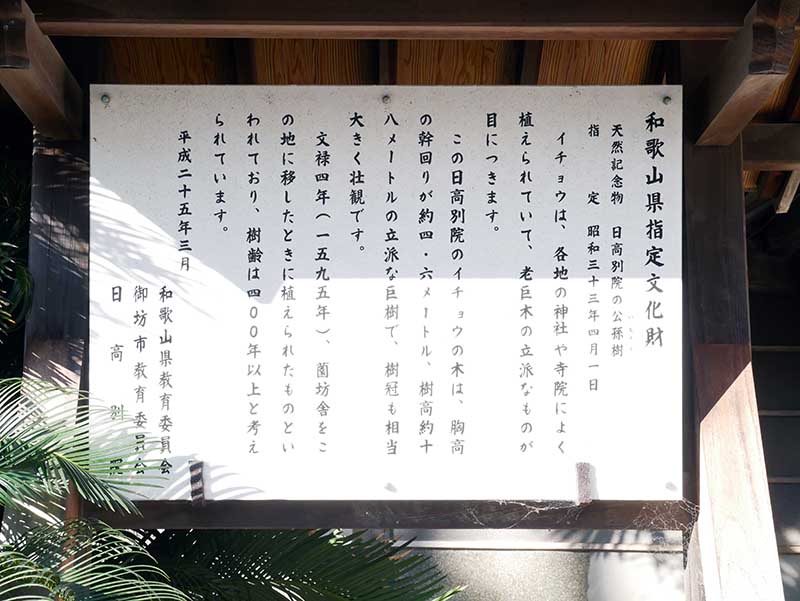 和歌山県指定文化財
天然記念物　日高別院の公孫樹
指　定　昭和三十三年四月一日
イチョウは、各地の神社や寺院によく
植えられていて、老巨木の立派なものが
目につきます。
この日高別院のイチョウの木は、胸高
の幹回りが約四・六メートル、樹高約十
八メートルの立派な巨樹で、樹冠も相当
大きく壮観です。
文禄四年（一五九五年）、薗坊舎をこ
の地に移したときに植えられたものとい
われており、樹齢は四〇〇年以上と考え
られています。
平成二十五年三月
和歌山県教育委員会
御坊市教育委員会
日高別院